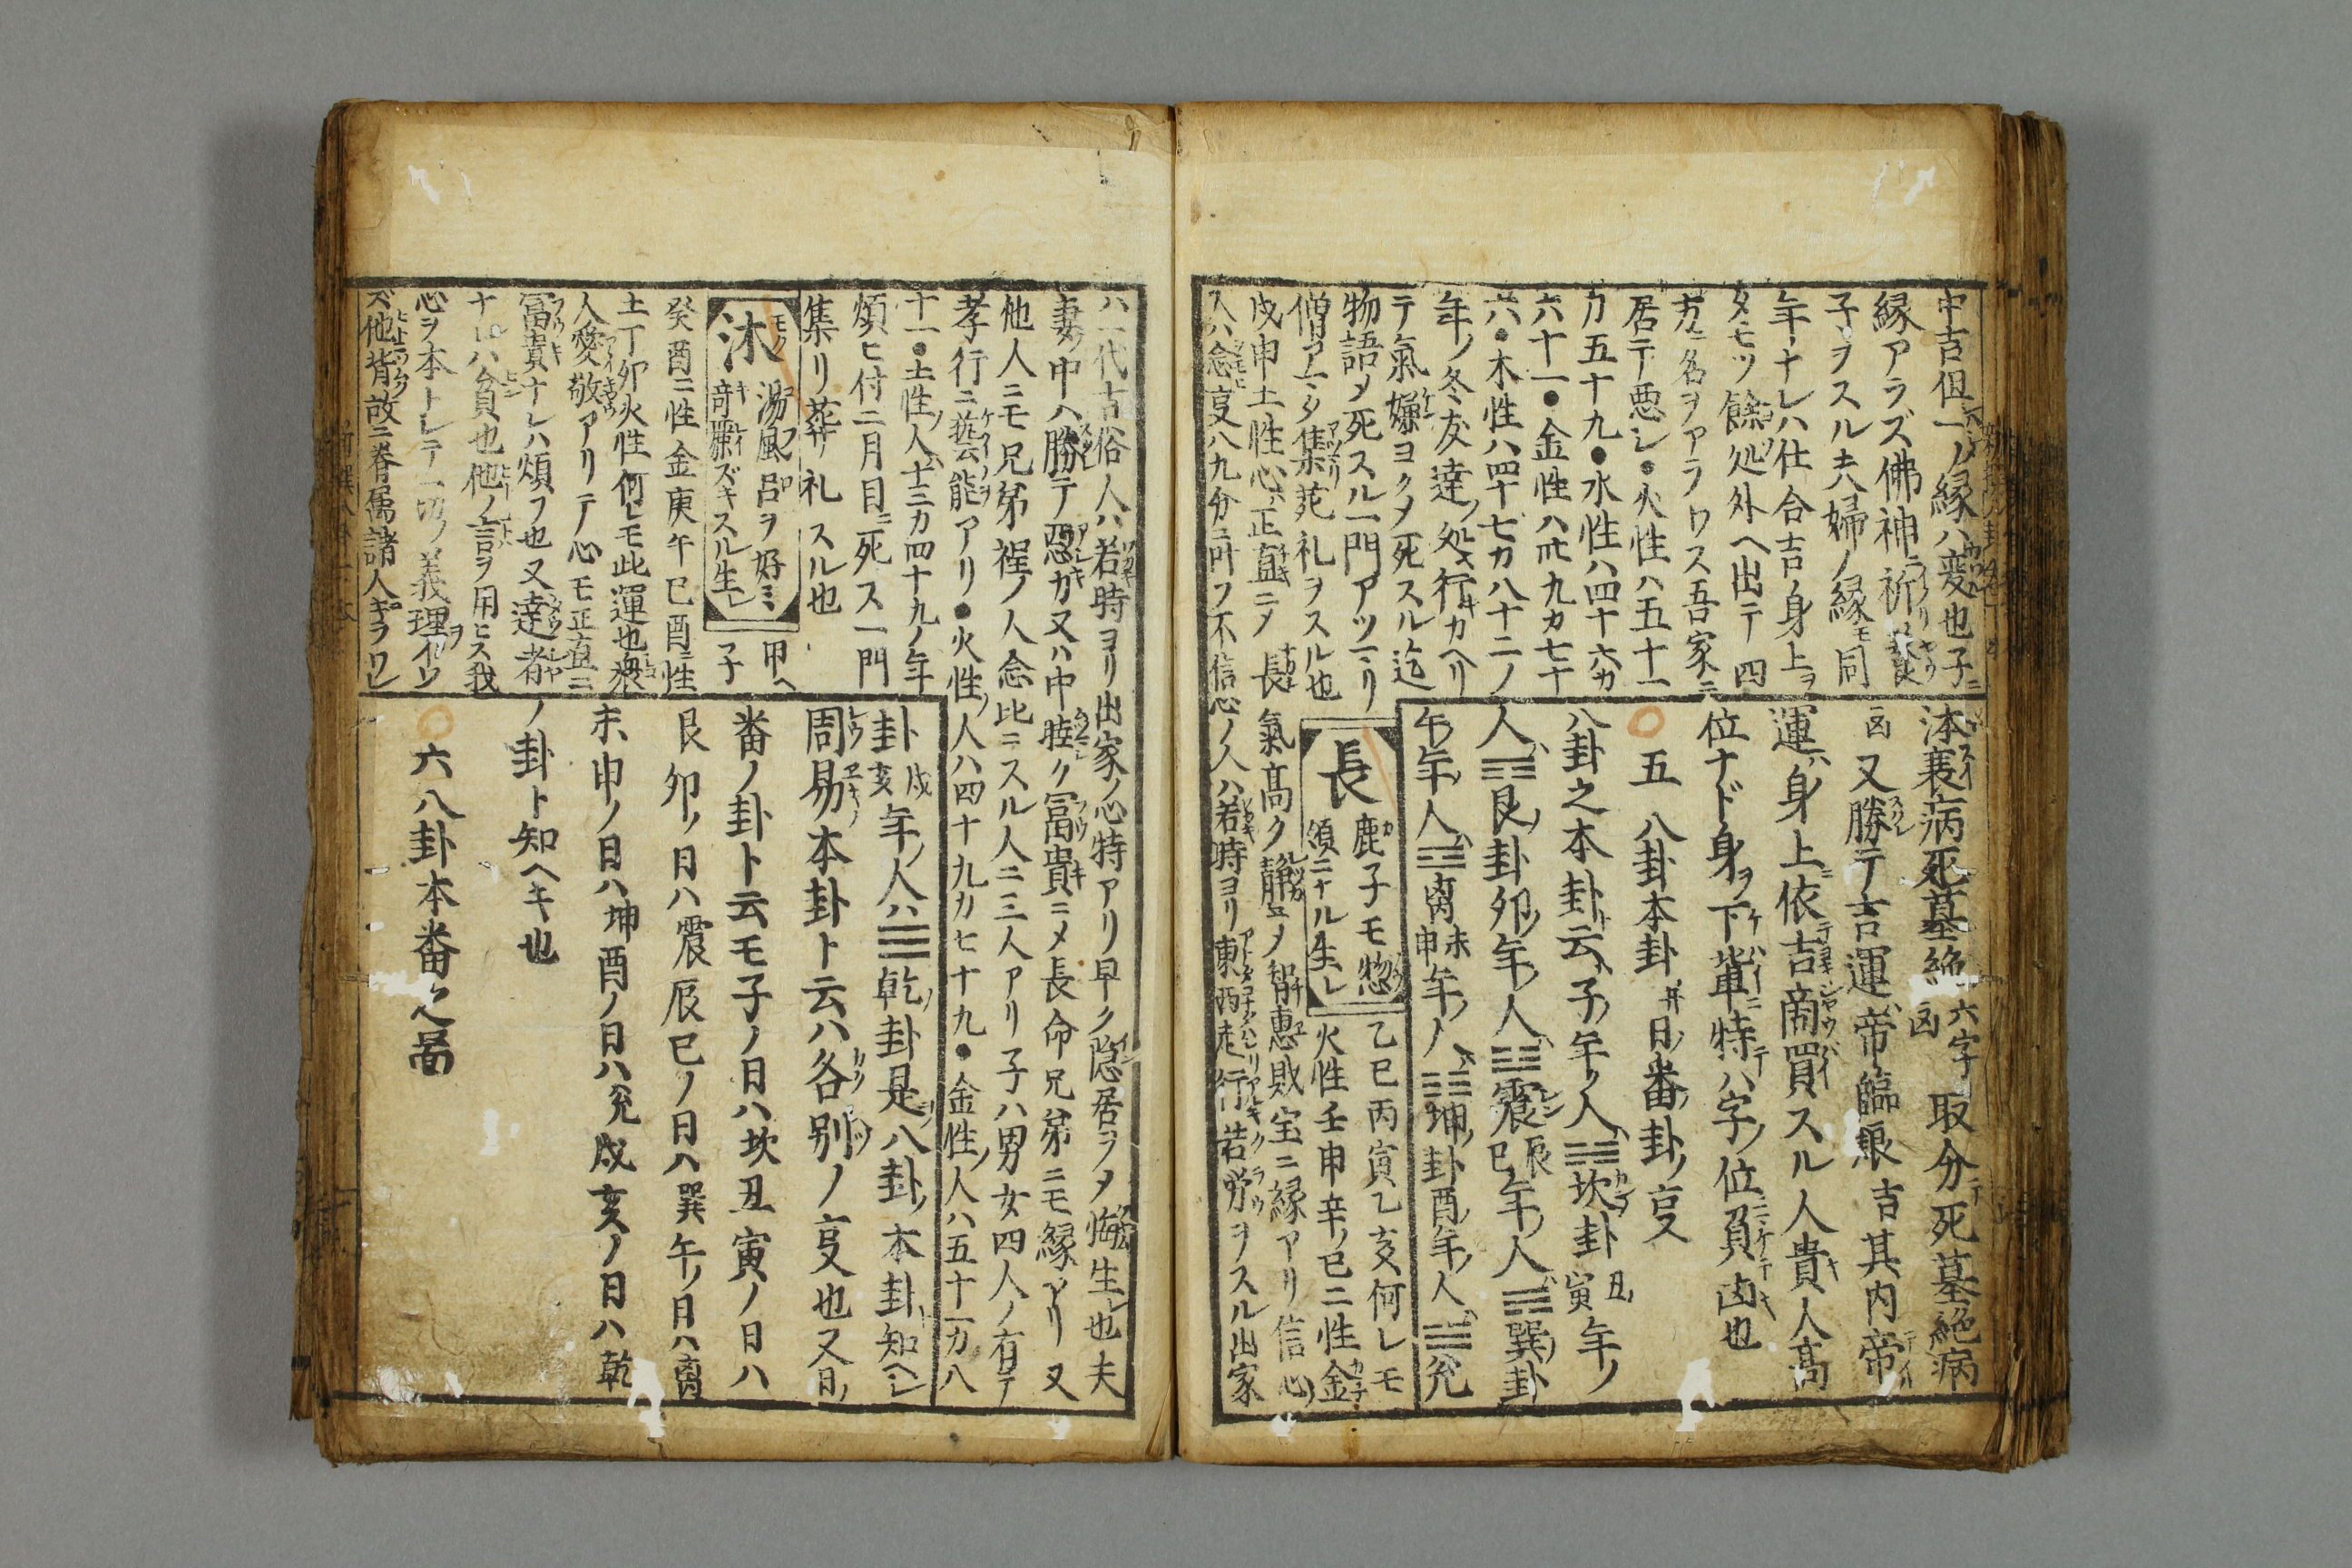 中吉但一ノ縁ハ変也子ニ
縁アラズ佛神ニ祈
子ヲスル夫婦ノ縁モ同
年ナレハ仕合吉ノ身上ヲ
タモツ餘処外ヘ出テ四
方ニ名ヲアラワス吾家ニ
居テ悪レ●火性ハ五十一
カ五十九●水性ハ四十六カ
六十一●金性ハ卅九カ七十
六●木性ハ四十七カ八十二ノ
年ノ冬友達ノ処ヘ行カヘリ
テ氣嫌ヨクメ死スル迄
物語メ死スル一門アツマリ
僧アマタ集葬礼ヲスル也
沐衰病死墓絶六字取分死墓絶病
凶又勝テ吉運ハ帝臨長吉其内帝
運ハ身上ニ依吉商買スル人貴人高
位ナド身ヲ下輩ニ特テハ字ノ位ニ負テ凶也
五八卦本卦并日番ノ卦ノ亨
八卦之本卦ト云ハ子ノ年ノ人ハ☵坎ノ卦丑寅年ノ
人ハ☶艮ノ卦卯ノ年ノ人ハ☳震辰巳年ノ人ハ☴巽ノ卦
午ノ年ノ人ハ☲离未申年ノ人ハ☷坤ノ卦酉ノ年ノ人ハ☱兌
長
鹿子モ惣
領ニナル生レ
乙巳丙寅乙亥何レモ
火性壬申辛ノ巳二性金
戊申土性心ハ正直ニメ長氣高ク静ニメ智惠敗宝ニ縁アリ信心ノ
人ハ念亨八九分ニ叶フ不信心ノ人ハ若時ヨリ東西走行若労ヲスル出家
ハ一代吉俗人ハ若時ヨリ出家ノ心特アリ早ク隠居ヲメ悔生レ也夫
妻ノ中ハ勝テ惡カ又ハ中睦ク冨貴ニメ長命兄弟ニモ縁アリ又
他人ニモ兄弟程ノ人念比ニスル人二三人アリ子ハ男女四人ノ有テ
孝行ニ藝能アリ●火性ノ人ハ四十九カ七十九●金性ノ人ハ五十一カ八
十一●土性ノ人ハ十三カ四十九ノ年
煩ヒ付二月目ニ死ス一門
集リ葬礼スル也
沐
湯風呂ヲ好ミ
竒麗ズキスル生レ
甲ヘ
子
癸酉二性金庚午巳酉二性
土丁卯火性何レモ此運也衆
人愛敬アリテ心モ正直ニ
冨貴ナレハ煩フ也又達者
ナレハ貧也他ノ言ヲ用ヒス我
心ヲ本トレテ一切ノ義理ヲイワ
ズ他背故ニ眷属諸人キラワレ
卦戌亥年ノ人ハ☰乾ノ卦是ヲ八卦ノ本卦ト知ヘレ
周易ノ本卦ト云ハ各別ノ亨也又日ノ
番ノ卦ト云モ子ノ日ハ坎丑寅ノ日ハ
艮卯ノ日ハ震辰巳ノ日ハ巽午ノ日ハ离
未申ノ日ハ坤酉ノ日ハ兌戌亥ノ日ハ乾
ノ卦ト知ヘキ也
六八卦本番之啚